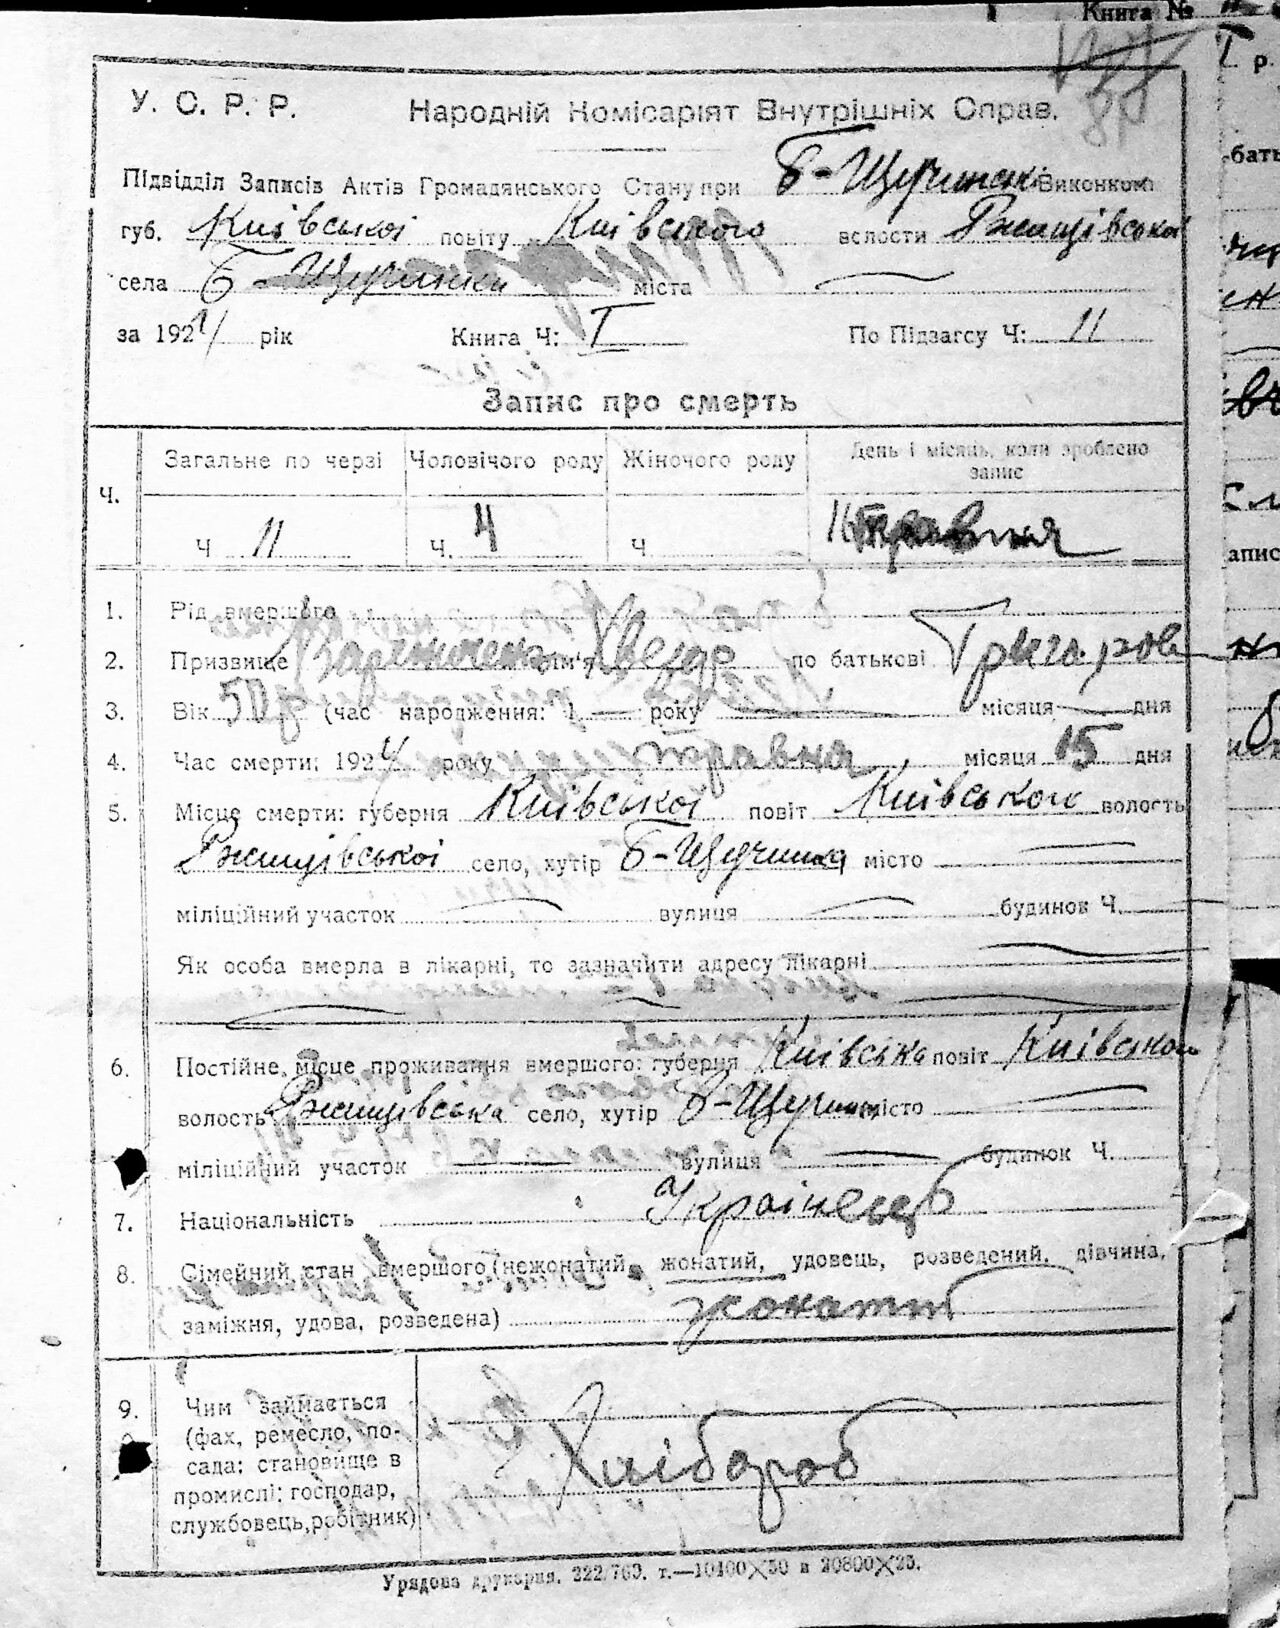 Книга №
У. С. Р. Р. Народній Комісаріят Внутрішніх Справ.
Підвідділ Записів Актів Громадянського Стану при Б-Щучинск Виконкомі
губ. Київської повіту Київського волости Ржищівської
села Б-Щучинки міста
за 1924 рік Книга Ч: I По Підзагсу Ч: 11
Запис про смерть
Ч. Загальне по черзі Чоловічого роду Жіночого роду День і місяць, коли зроблено запис
Ч 11 Ч. 4 Ч травня
1. Рід вмершого
2. Призвище ім'я по батькові Григоров
3. Вік 50 р (час народження: 1 року місяця дня
4. Час смерти: 1924 року травня місяця 15 дня
5. Місце смерти: губерня Київської повіт Київського волость
Ржищівської село, хутір Б-Щучинка місто
міліційний участок вулиця будинок Ч.
Як особа вмерла в лікарні, то зазначити адресу лікарні
6. Постійне місце проживання вмершого: губерня Київська повіт Київськой
волость Ржищівська село, хутір Б-Щучинк місто
міліційний участок вулиця будинок Ч.
7. Національність Українець
8. Сімейний стан вмершого (нежонатий, жонатий, удовець, розведений, дівчина,
заміжня, удова, розведена) жонатий
9. Чим займається
(фах, ремесло, по-
сада; становище в
промислі: господар,
службовець, робітник) Хлібороб
Урядова друкарня. 222/760. т.—10400×50 и 20800×25.